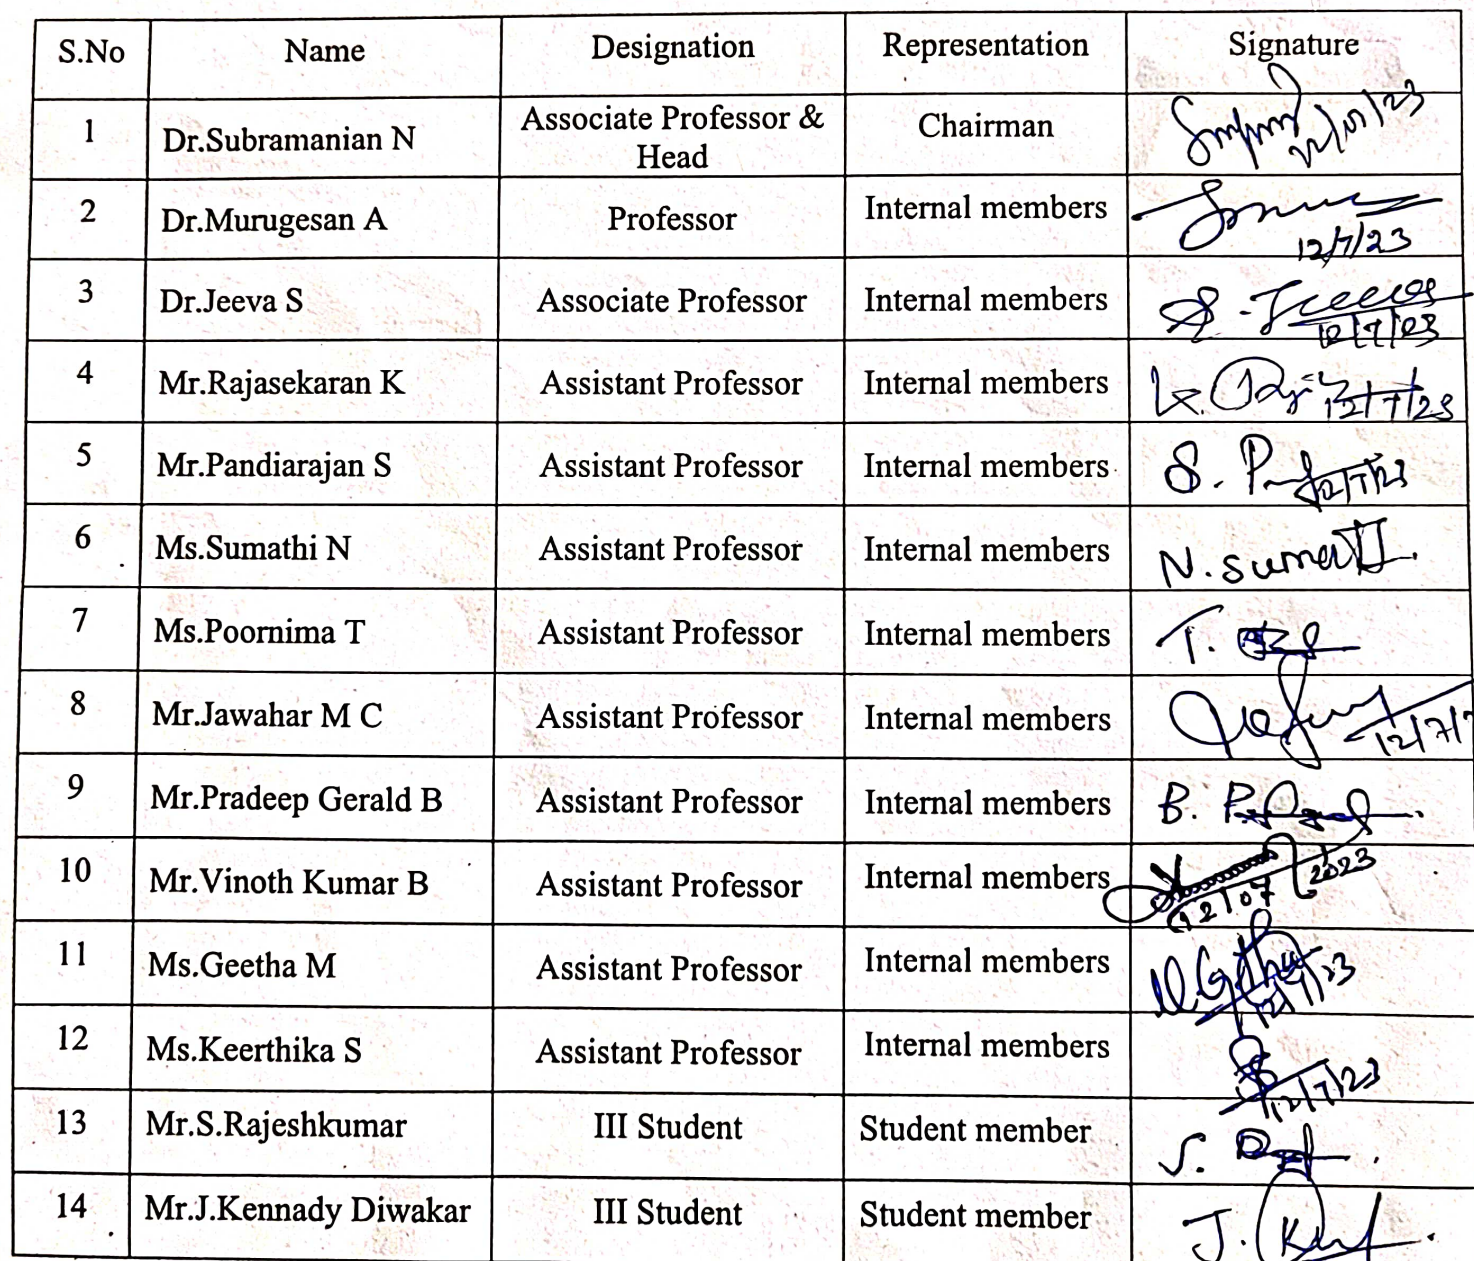 S.No Name Designation Representation Signature
1 Dr.Subramanian N Associate Professor & Head Chairman
2 Dr.Murugesan A Professor Internal members 12/7/23
3 Dr.Jeeva S Associate Professor Internal members S. Jeeva 12/7/23
4 Mr.Rajasekaran K Assistant Professor Internal members K. 12/7/23
5 Mr.Pandiarajan S Assistant Professor Internal members S. P 12/7/23
6 Ms.Sumathi N Assistant Professor Internal members N. Sumathi
7 Ms.Poornima T Assistant Professor Internal members T.
8 Mr.Jawahar M C Assistant Professor Internal members 12/7/
9 Mr.Pradeep Gerald B Assistant Professor Internal members B.
10 Mr.Vinoth Kumar B Assistant Professor Internal members 12/07/2023
11 Ms.Geetha M Assistant Professor Internal members 12/7/23
12 Ms.Keerthika S Assistant Professor Internal members 12/7/23
13 Mr.S.Rajeshkumar III Student Student member S.
14 Mr.J.Kennady Diwakar III Student Student member J.